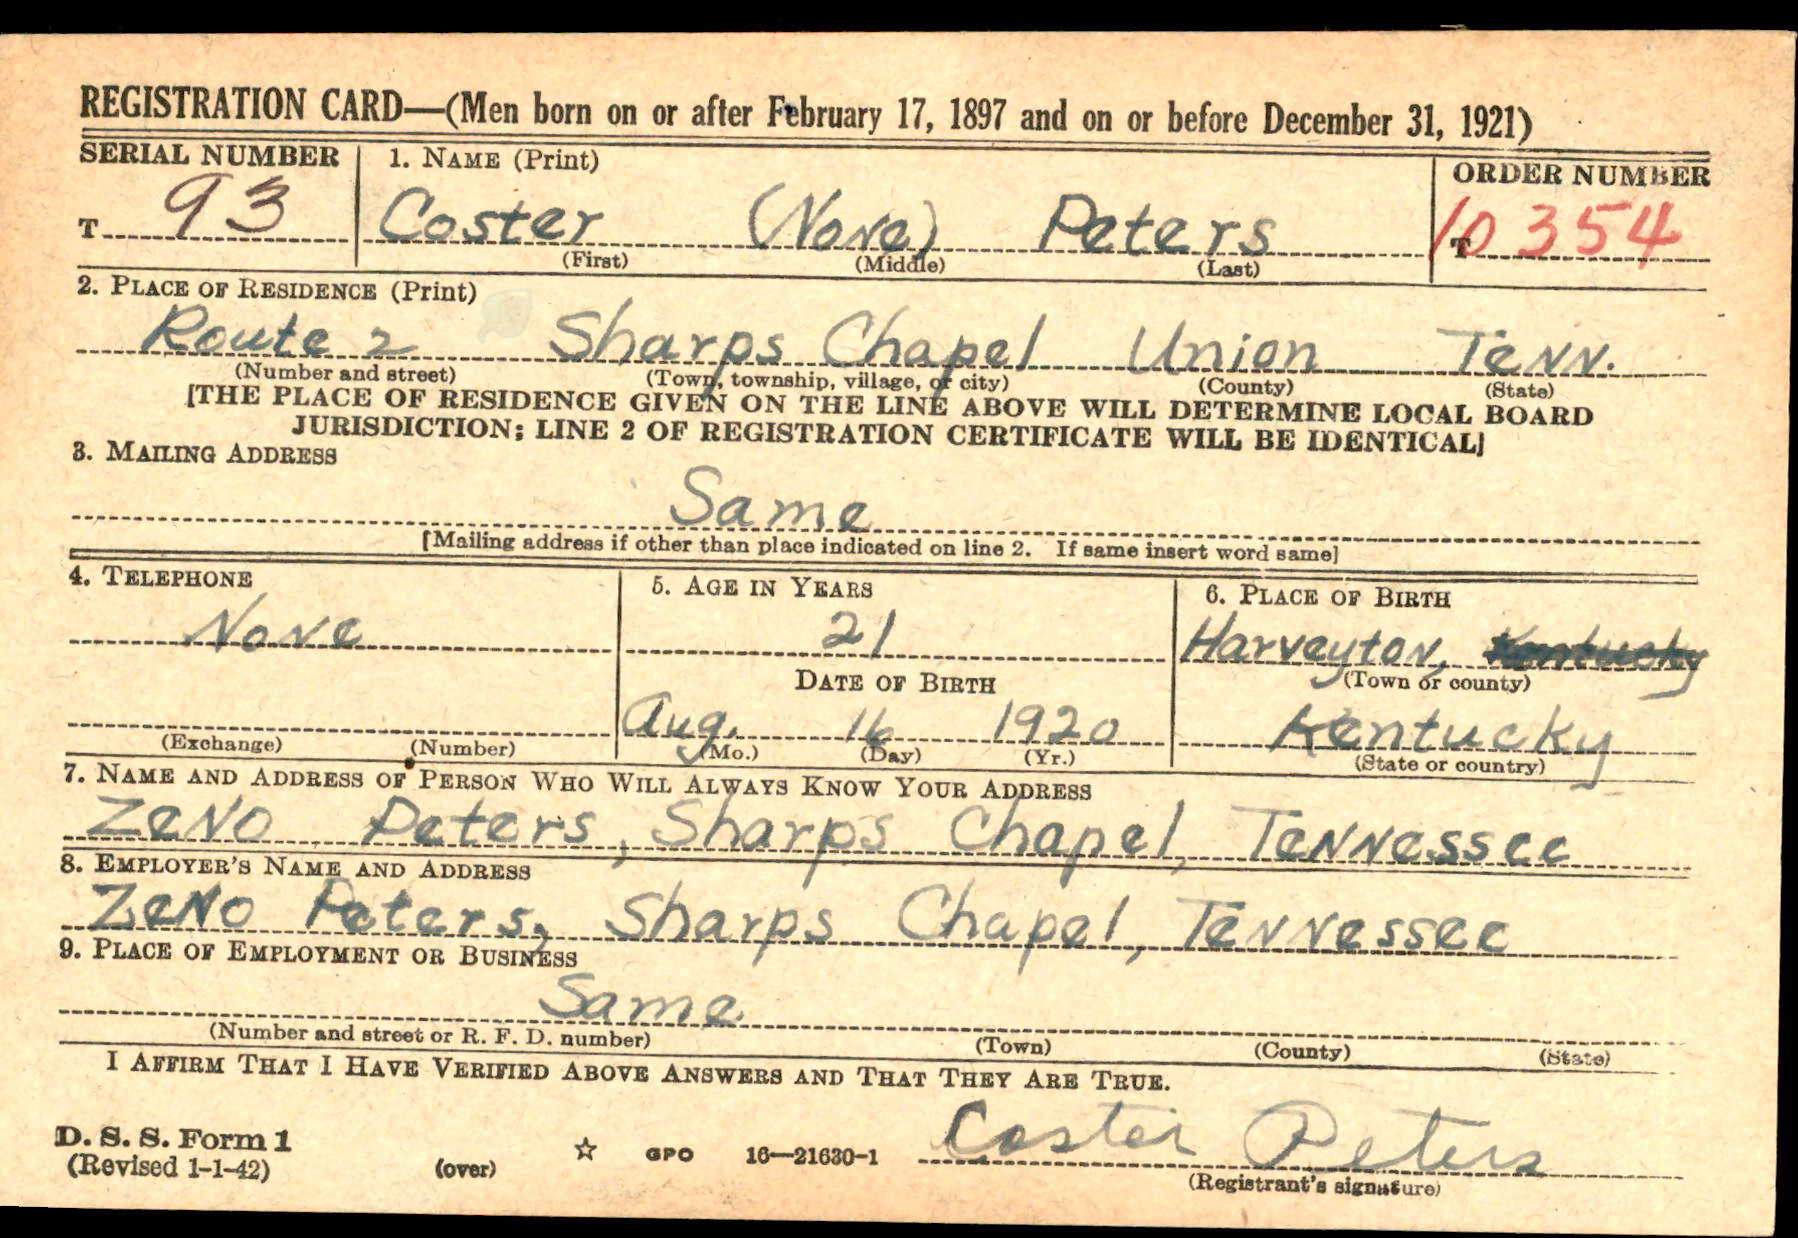 REGISTRATION CARD—(Men born on or after February 17, 1897 and on or before December 31, 1921)
SERIAL NUMBER 1. NAME (Print) ORDER NUMBER
T 93 Coster (None) Peters T 10354
(First) (Middle) (Last)
2. PLACE OF RESIDENCE (Print)
Route 2 Sharps Chapel Union Tenn.
(Number and street) (Town, township, village, or city) (County) (State)
[THE PLACE OF RESIDENCE GIVEN ON THE LINE ABOVE WILL DETERMINE LOCAL BOARD
JURISDICTION; LINE 2 OF REGISTRATION CERTIFICATE WILL BE IDENTICAL]
3. MAILING ADDRESS
Same
[Mailing address if other than place indicated on line 2. If same insert word same]
4. TELEPHONE 5. AGE IN YEARS 6. PLACE OF BIRTH
None 21 Harveyton, Kentucky
DATE OF BIRTH (Town or county)
Aug. 16 1920 Kentucky
(Exchange) (Number) (Mo.) (Day) (Yr.) (State or country)
7. NAME AND ADDRESS OF PERSON WHO WILL ALWAYS KNOW YOUR ADDRESS
Zeno Peters, Sharps Chapel, Tennessee
8. EMPLOYER'S NAME AND ADDRESS
Zeno Peters, Sharps Chapel, Tennessee
9. PLACE OF EMPLOYMENT OR BUSINESS
Same
(Number and street or R. F. D. number) (Town) (County) (State)
I AFFIRM THAT I HAVE VERIFIED ABOVE ANSWERS AND THAT THEY ARE TRUE.
D. S. S. Form 1
(Revised 1-1-42) (over) ☆ GPO 16—21630-1 Coster Peters
(Registrant's signature)